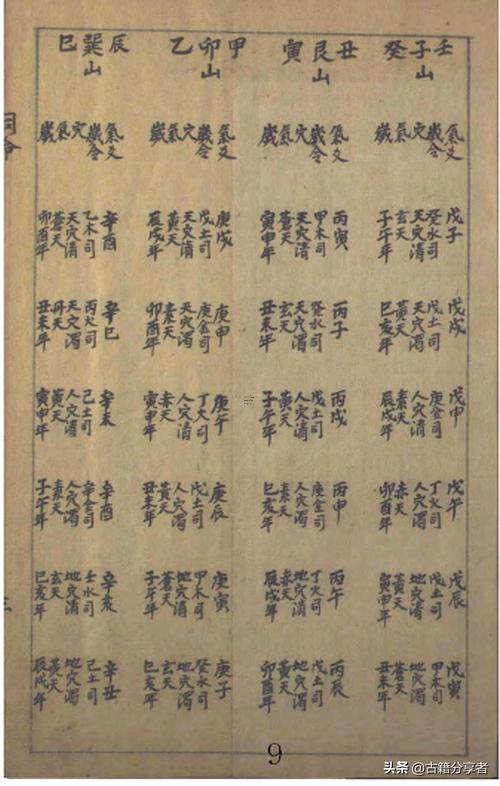 壬子癸
山
氣爻
歲令
穴
氣
歲
戊子
癸水司
天穴清
玄天
子午年
戊戌
戊土司
天穴濁
黃天
巳亥年
戊申
庚金司
人穴清
素天
辰戌年
戊午
丁火司
人穴濁
赤天
卯酉年
戊辰
戊土司
地穴清
黃天
寅申年
戊寅
甲木司
地穴濁
蒼天
丑未年
丑艮寅
山
氣爻
歲令
穴
氣
歲
丙寅
甲木司
天穴清
蒼天
寅申年
丙子
癸水司
天穴濁
玄天
丑未年
丙戌
戊土司
人穴清
黃天
子午年
丙申
庚金司
人穴濁
素天
巳亥年
丙午
丁火司
地穴清
赤天
辰戌年
丙辰
戊土司
地穴濁
黃天
卯酉年
甲卯乙
山
氣爻
歲令
穴
氣
歲
庚戌
戊土司
天穴清
黃天
辰戌年
庚申
庚金司
天穴濁
素天
卯酉年
庚午
丁火司
人穴清
赤天
寅申年
庚辰
戊土司
人穴濁
黃天
丑未年
庚寅
甲木司
地穴清
蒼天
子午年
庚子
癸水司
地穴濁
玄天
巳亥年
辰巽巳
山
氣爻
歲令
穴
氣
歲
辛酉
乙木司
天穴清
蒼天
卯酉年
辛巳
丙火司
天穴濁
丹天
丑未年
辛未
己土司
人穴清
黃天
寅申年
辛酉
辛金司
人穴濁
素天
子午年
辛亥
壬水司
地穴清
玄天
巳亥年
辛丑
己土司
地穴濁
黃天
辰戌年
9
头条 @古籍分享者